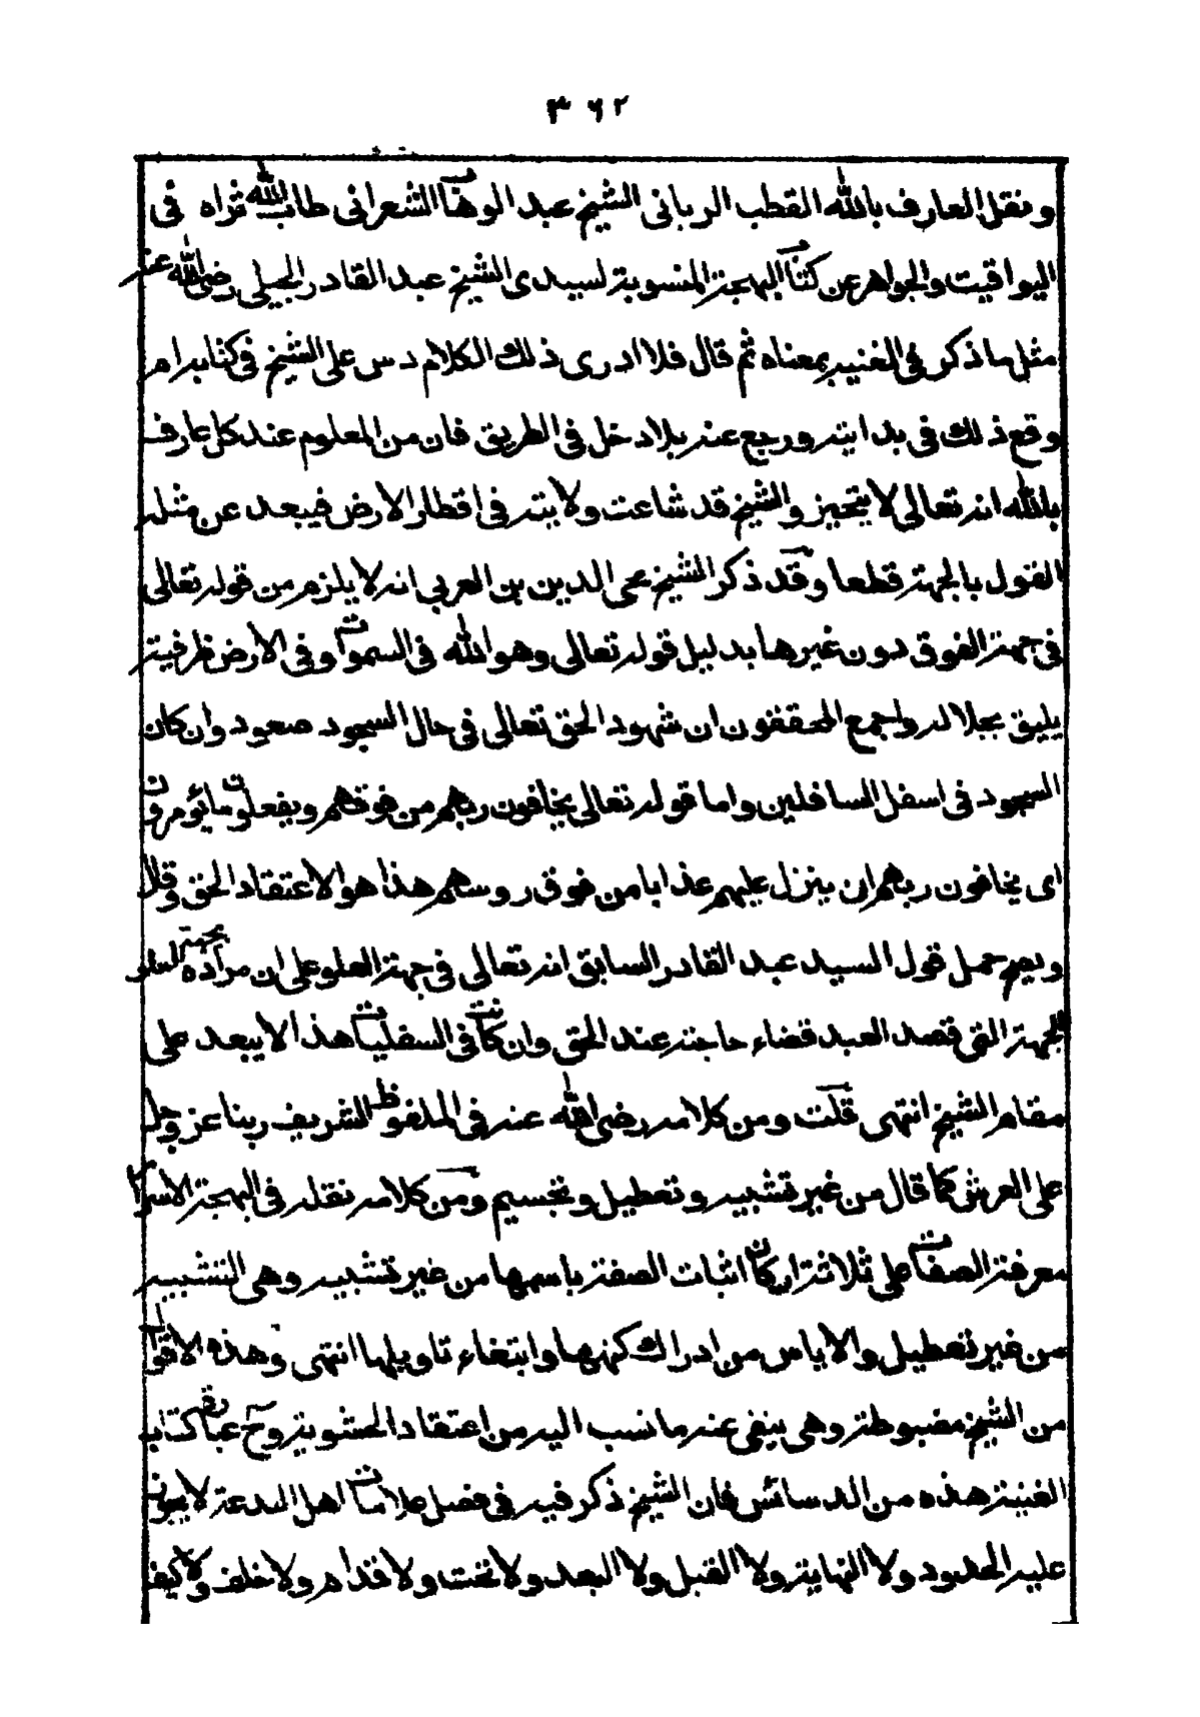 ٣٦٢
ونقل العارف بالله القطب الربانى الشيخ عبد الوهاب الشعرانى طاب الله ثراه فى
اليواقيت والجواهر عن كتاب البهجة المنسوبة لسيدى الشيخ عبد القادر الجيلى رضى الله عنه
مثل ما ذكر فى الغنية بمعناه ثم قال فلا ادرى ذلك الكلام دس على الشيخ فى كتابه ام
وقع ذلك فى بدايته ورجع عنه بلا دخل فى الطريق فان من المعلوم عند كل عارف
بالله انه تعالى لا يتحيز والشيخ قد شاعت ولايته فى اقطار الارض فيبعد عن مثله
القول بالجهة قطعا وقد ذكر الشيخ محى الدين بن العربى انه لا يلزم من قوله تعالى
فى جهة الفوق دون غيرها بدليل قوله تعالى وهو الله فى السموات وفى الارض ظرفية
يليق بجلاله واجمع المحققون ان شهود الحق تعالى فى حال السجود صعود وان كان
السجود فى اسفل السافلين واما قوله تعالى يخافون ربهم من فوقهم ويفعلون ما يؤمرون
اى يخافون ربهم ان ينزل عليهم عذابا من فوق روسهم هذا هو الاعتقاد الحق وقال
ويصح حمل قول السيد عبد القادر السابق انه تعالى فى جهة العلو على ان مراده بجهة العلو
الجهة التى قصد العبد قضاء حاجته عند الحق وان كانت فى السفليات هذا لا يبعد على
مقام الشيخ انتهى قلت ومن كلامه رضى الله عنه فى الملفوظ الشريف ربنا عز وجل
على العرش كما قال من غير تشبيه وتعطيل وتجسيم ومن كلامه نقله فى البهجة الاسرار
معرفة الصفات على ثلاثة اركان اثبات الصفة باسمها من غير تشبيه وهى التشبيه
من غير تعطيل والاياس من ادراك كنهها وابتغاء تاويلها انتهى وهذه الاقوال
من الشيخ مضبوطة وهى ينفى عنه ما نسب اليه من اعتقاد الحشوية وح عبارة كتاب
الغنية هذه من الدسائس فان الشيخ ذكر فيه فى فصل علامات اهل البدعة لا يجوز
عليه الحدود ولا النهاية ولا القبل ولا البعد ولا تحت ولا قدام ولا خلف ولا كيف